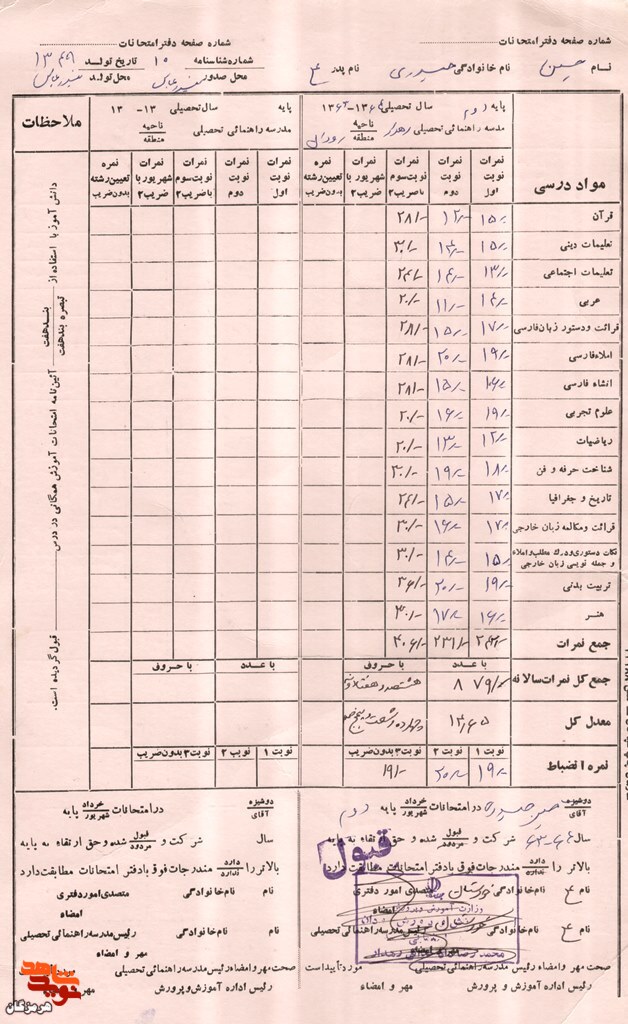 شماره صفحه دفتر امتحانات
شماره صفحه دفتر امتحانات
نام حسین نام خانوادگی حیدری نام پدر ع شماره شناسنامه ۱۰ تاریخ تولد ۱۳۴۹
محل صدور بندرعباس محل تولد بندرعباس
پایه دوم سال تحصیلی ۱۳۶۳-۱۳۶۴
مدرسه راهنمائی تحصیلی ناحیه منطقه رودان
پایه سال تحصیلی ۱۳ - ۱۳
مدرسه راهنمائی تحصیلی ناحیه منطقه
ملاحظات
مواد درسی نمرات نوبت اول نمرات نوبت دوم نمرات نوبت سوم با ضریب ۲ نمرات شهریور با ضریب ۲ نمره تعیین رشته بدون ضریب نمرات نوبت اول نمرات نوبت دوم نمرات نوبت سوم با ضریب ۲ نمرات شهریور با ضریب ۲ نمره تعیین رشته بدون ضریب
قرآن ۱۵/- ۱۲/- ۲۸/-
تعلیمات دینی ۱۵/- ۱۴/- ۳۰/-
تعلیمات اجتماعی ۱۳/- ۱۴/- ۲۴/-
عربی ۱۴/- ۱۱/- ۲۰/-
قرائت و دستور زبان فارسی ۱۷/- ۱۵/- ۲۸/-
املاء فارسی ۱۹/- ۲۰/- ۲۸/-
انشاء فارسی ۱۵/- ۲۸/-
علوم تجربی ۱۹/- ۱۶/- ۲۰/-
ریاضیات ۱۲/- ۱۳/- ۲۰/-
شناخت حرفه و فن ۱۸/- ۱۹/- ۳۰/-
تاریخ و جغرافیا ۱۷/- ۱۵/- ۲۴/-
قرائت و مکالمه زبان خارجی ۱۷/- ۱۶/- ۳۰/-
نکات دستوری و درک مطلب و املاء و جمله نویسی زبان خارجی ۱۵/- ۱۴/- ۳۰/-
تربیت بدنی ۱۹/- ۲۰/- ۳۶/-
هنر ۱۶/- ۱۷/- ۳۰/-
جمع نمرات ۲۴۲/- ۲۳۱/- ۴۰۶/-
با عدد با حروف با عدد با حروف
جمع کل نمرات سالانه ۸۷۹/- هشتصد و هفتاد و نه
معدل کل ۱۴/۶۵ چهارده و شصت و پنج صدم
نمره انضباط نوبت ۱ نوبت ۲ نوبت ۳ بدون ضریب نوبت ۱ نوبت ۲ نوبت ۳ بدون ضریب
۱۹/- ۲۰/- ۱۹/-
دانش آموز با استفاده از تبصره بند هفت بند هفت آئین نامه امتحانات آموزش همگانی در درس قبول گردیده است.
دوشیزه آقای حسین حیدری در امتحانات خرداد شهریور پایه دوم
سال ۶۳-۶۴ شرکت و قبول مردود شده و حق ارتقاء به پایه
بالاتر را دارد ندارد مندرجات فوق با دفتر امتحانات مطابقت دارد
نام ع نام خانوادگی متصدی امور دفتری
امضاء
نام ع نام خانوادگی رئیس مدرسه راهنمائی تحصیلی
مهر و امضاء
صحت مهر و امضاء رئیس مدرسه راهنمائی تحصیلی مورد تأیید است
رئیس اداره آموزش و پرورش مهر و امضاء
قبول
وزارت آموزش و پرورش
دوشیزه آقای در امتحانات خرداد شهریور پایه
سال شرکت و قبول مردود شده و حق ارتقاء به پایه
بالاتر را دارد ندارد مندرجات فوق با دفتر امتحانات مطابقت دارد
نام نام خانوادگی متصدی امور دفتری
امضاء
نام نام خانوادگی رئیس مدرسه راهنمائی تحصیلی
مهر و امضاء
صحت مهر و امضاء رئیس مدرسه راهنمائی تحصیلی
رئیس اداره آموزش و پرورش
نوید شاهد
هرمزگان